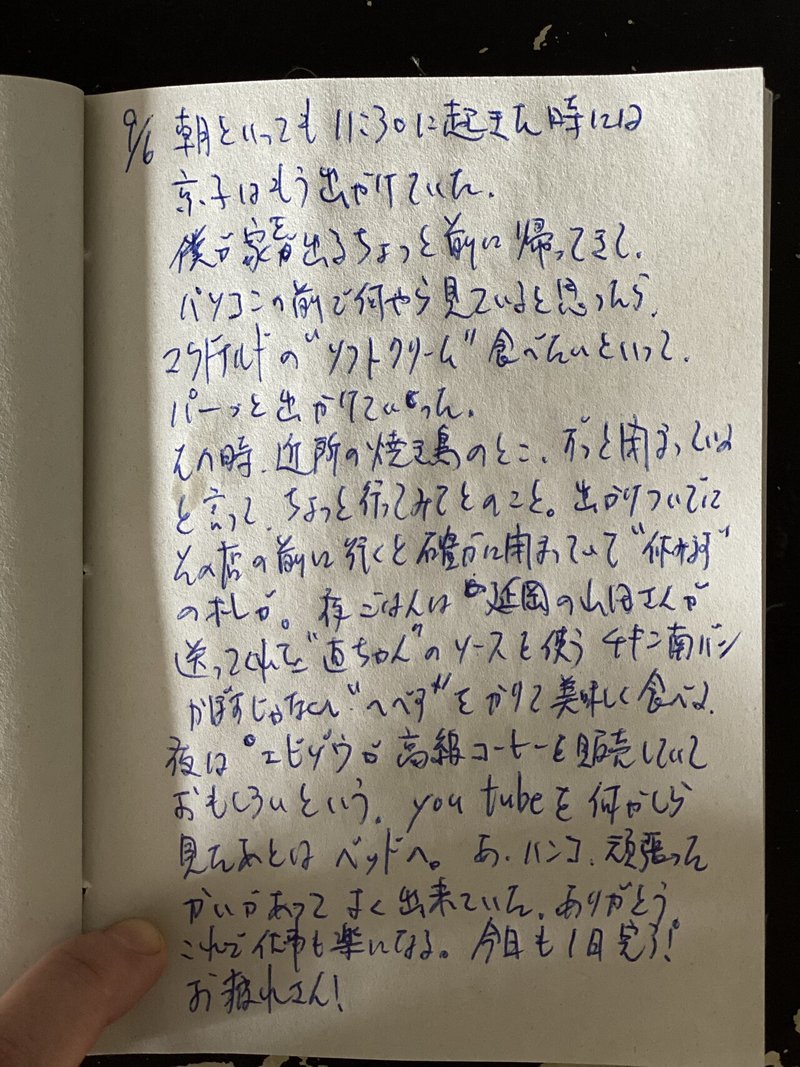 9/6 朝といっても 11:30に起きた時には
京子はもう出かけていた。
僕が家を出るちょっと前に帰ってきて、
パソコンの前で何やら見ていると思ったら、
マクドナルドの"ソフトクリーム"食べたいといって、
パーっと出かけていった。
その時、近所の焼き鳥のとこ、ずっと閉まっている
と言って、ちょっと行ってみてとのこと。出かけついでに
その店の前に行くと確かに閉まっていて"休みます"
の札が。夜ごはんは 延岡の山田さんが
送ってくれた"直ちゃん"のソースを使うチキン南バン
かぼすじゃなくて"へべす"をかけて美味しく食べる。
夜は エビゾウが高級コーヒーを販売していて
おもしろいという。you tubeを何かしら
見たあとは ベッドへ。あ、ハンコ、頑張った
かいがあって よく出来ていた。ありがとう。
これで仕事も楽になる。今日も1日完了!
お疲れさん!